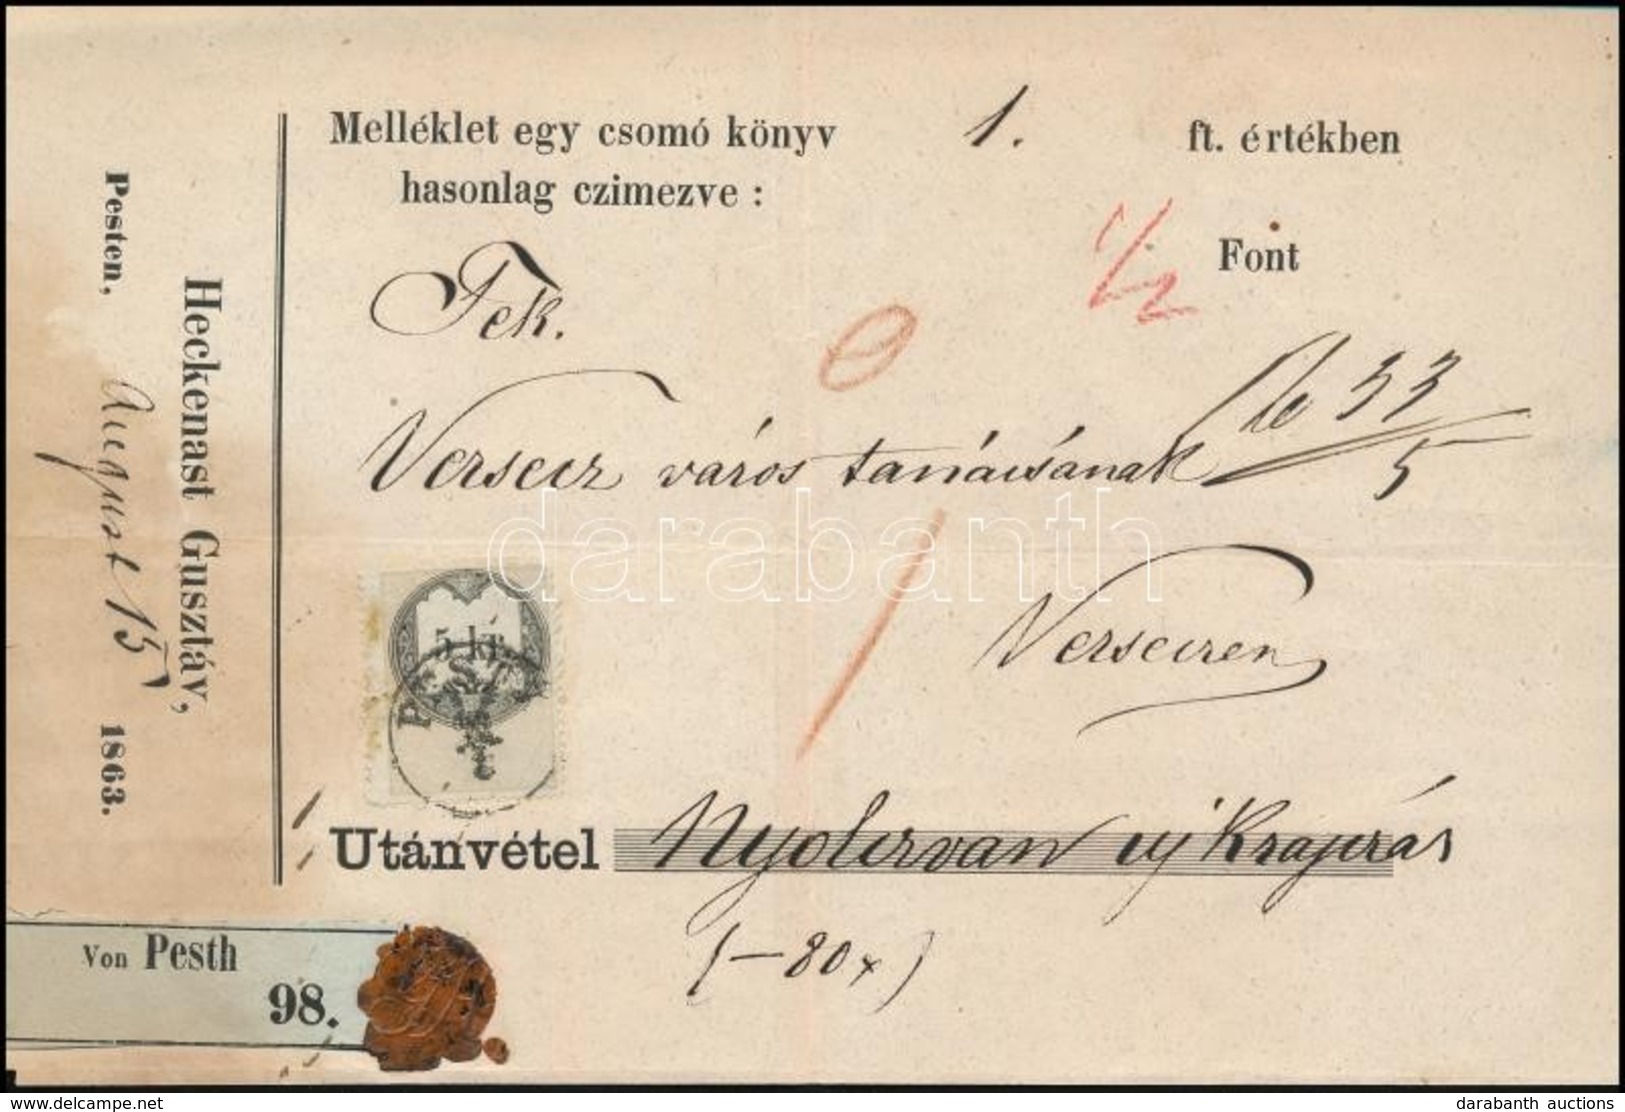 Melléklet egy csomó könyv 1. ft. értékben
hasonlag czimezve :
1/2 Font
Tek.
Versecz város tanácsának
33
5
Verseczen
5 kr
PEST
Utánvétel Nyolczvan uj Krajczár
(-80x)
Heckenast Gusztáv,
Pesten, August 15 1863.
Von Pesth
98.
darabanth
www.delcampe.net
darabanth auctions